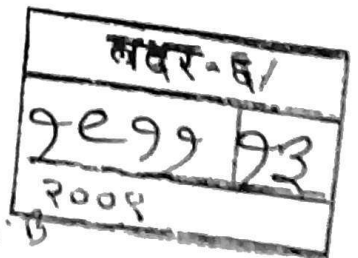 वदर-६/
१९११ १३
२००५